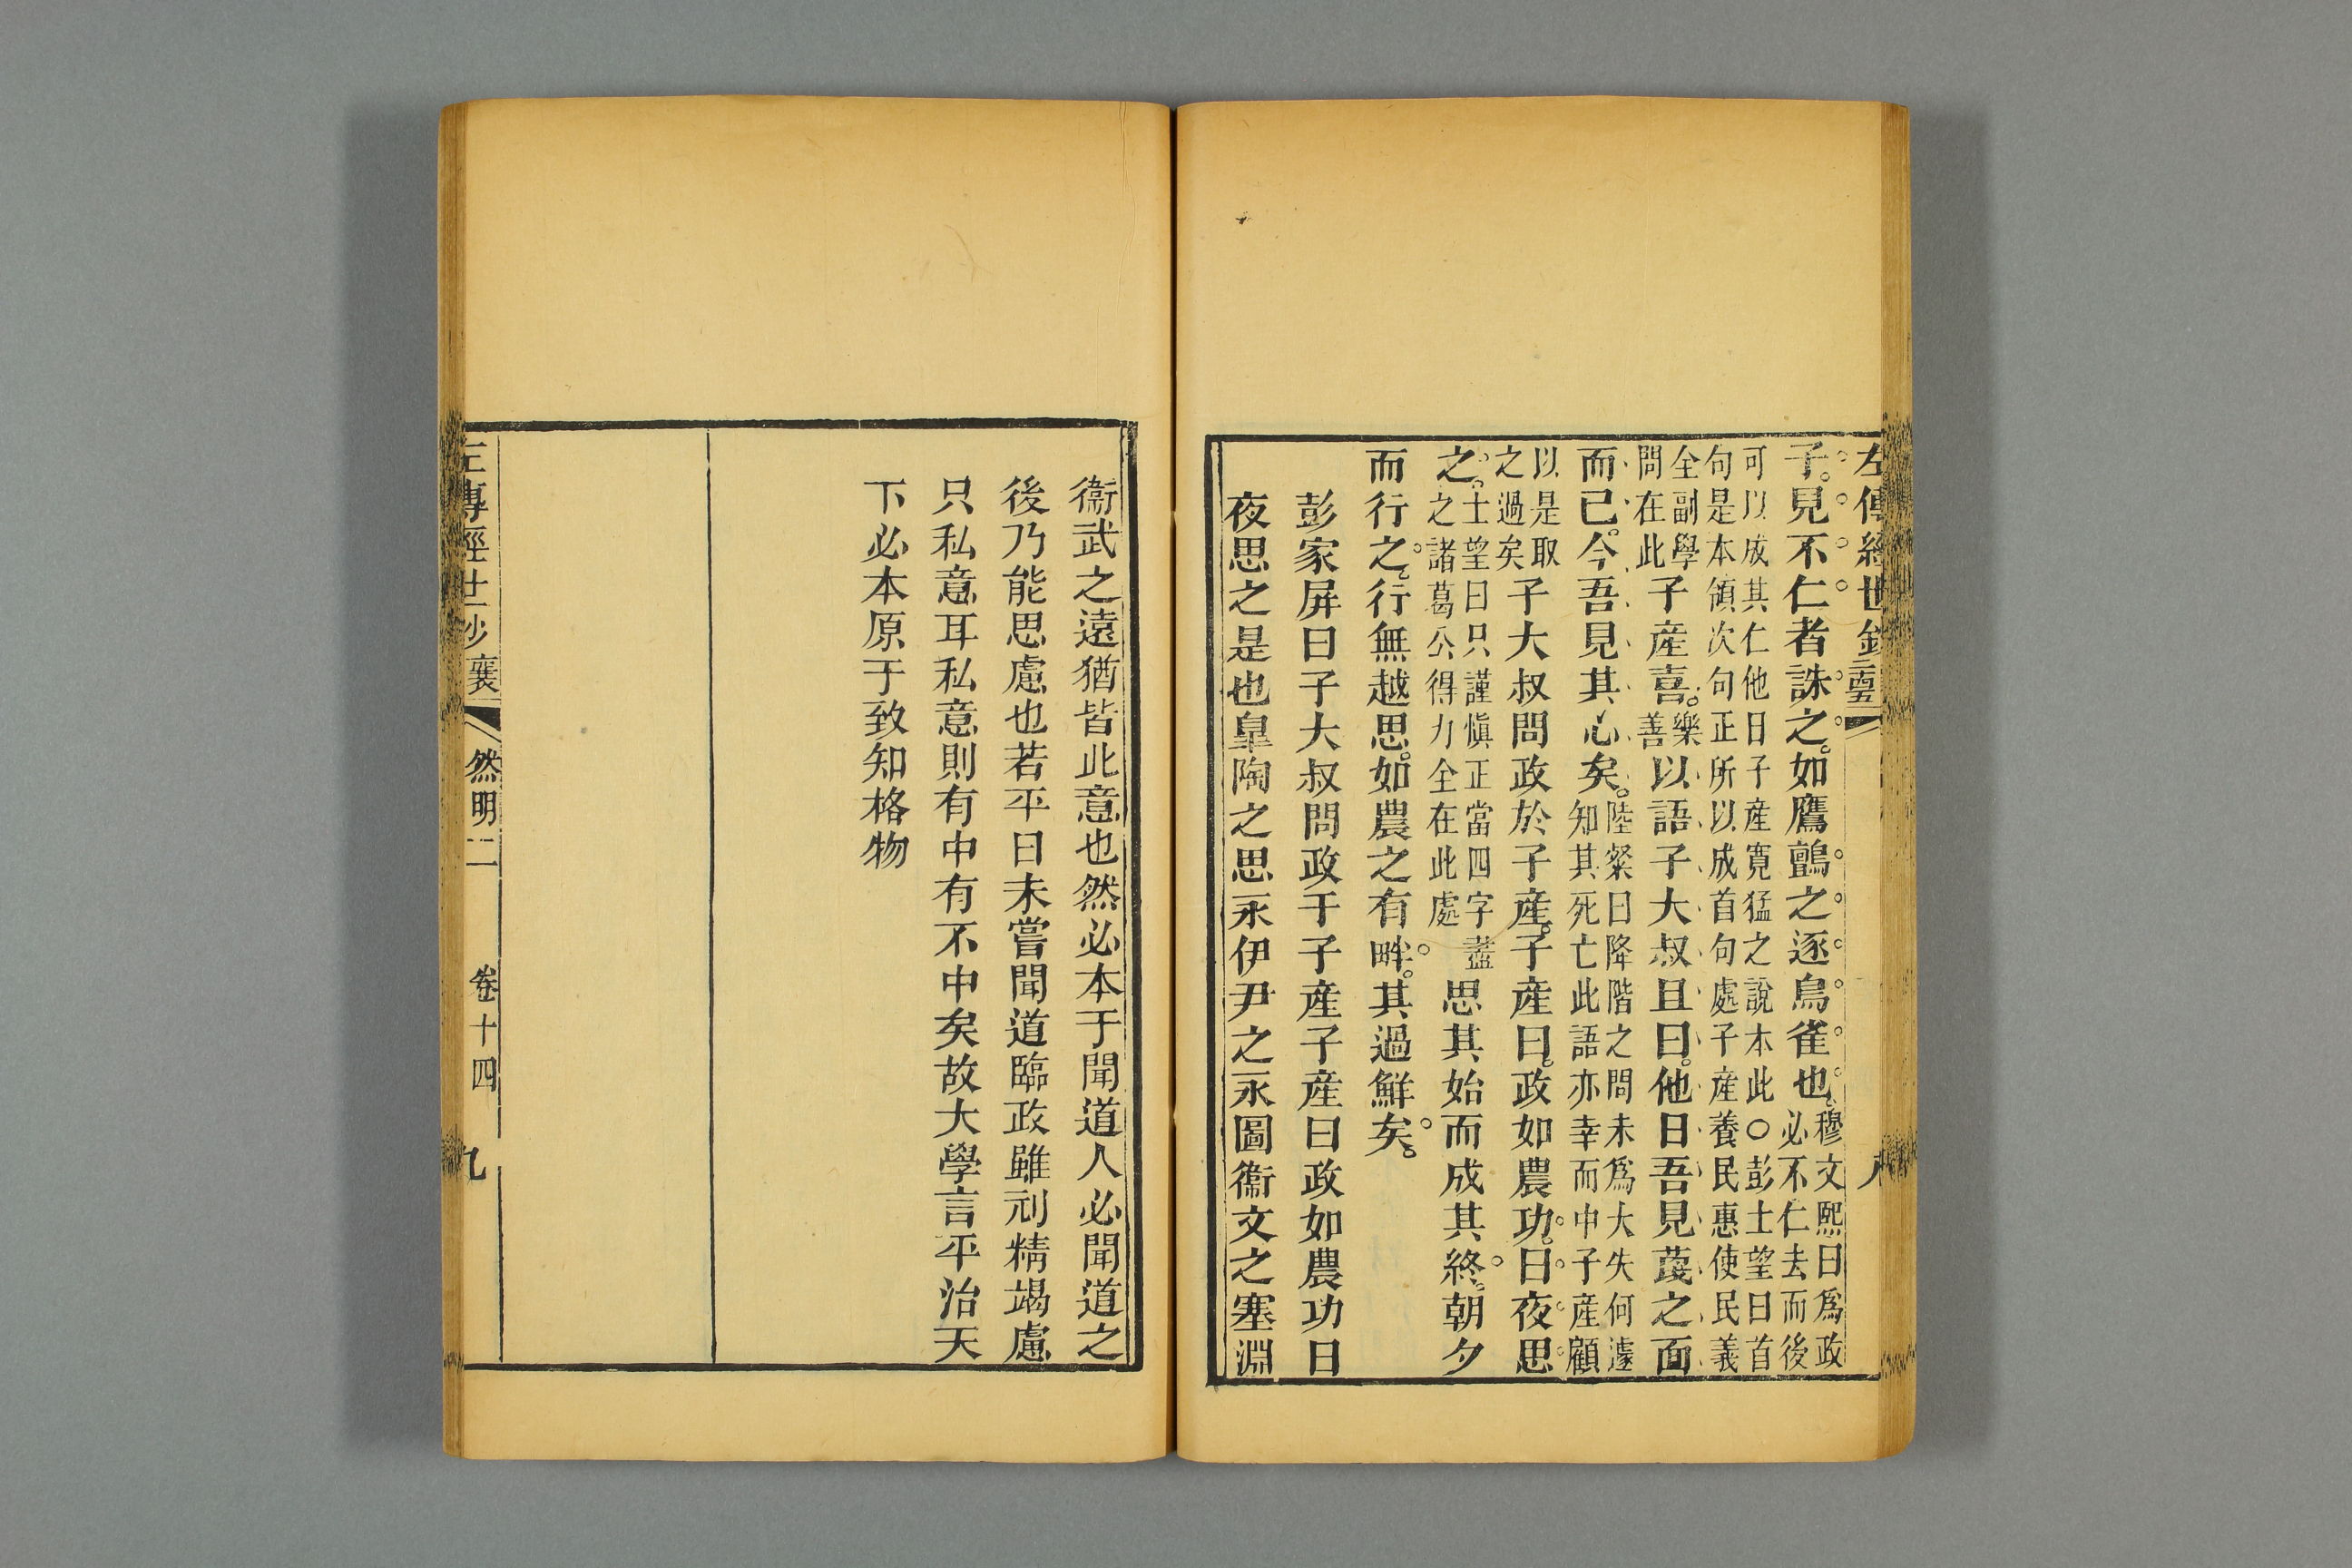 左傳經世鈔 八
子。見不仁者誅之。如鷹鸇之逐鳥雀也。穆文熙曰爲政必不仁去而後
可以成其仁他日子產寬猛之說本此○彭士望曰首句是本領次句正所以成首句處子產養民惠使民義
全副學問在此子產喜。樂善以語子大叔且曰。他日吾見蔑之面
而已。今吾見其心矣。陸粲曰降階之問未爲大失何遽知其死亡此語亦幸而中子產顧
以是取之過矣子大叔問政於子產。子產曰。政如農功。日夜思
之。士望曰只謹愼正當四字葢之諸葛公得力全在此處思其始而成其終。朝夕
而行之。行無越思。如農之有畔。其過鮮矣。
彭家屏曰子大叔問政于子產子產曰政如農功日
夜思之是也皐陶之思永伊尹之永圖衞文之塞淵
衞武之遠猶皆此意也然必本于聞道人必聞道之
後乃能思慮也若平日未嘗聞道臨政雖刓精竭慮
只私意耳私意則有中有不中矣故大學言平治天
下必本原于致知格物
左傳經世鈔 襄 然明二 卷十四 九